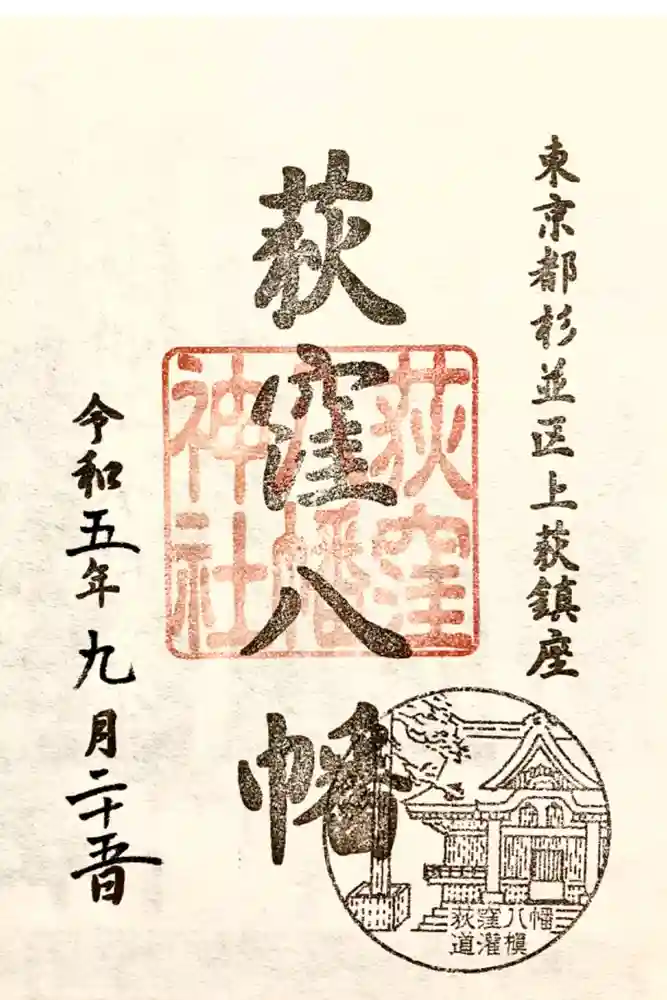 東京都杉並区上荻鎮座
萩窪八幡
荻窪
八幡
神社
令和五年九月二十五日
荻窪八幡
道灌槙